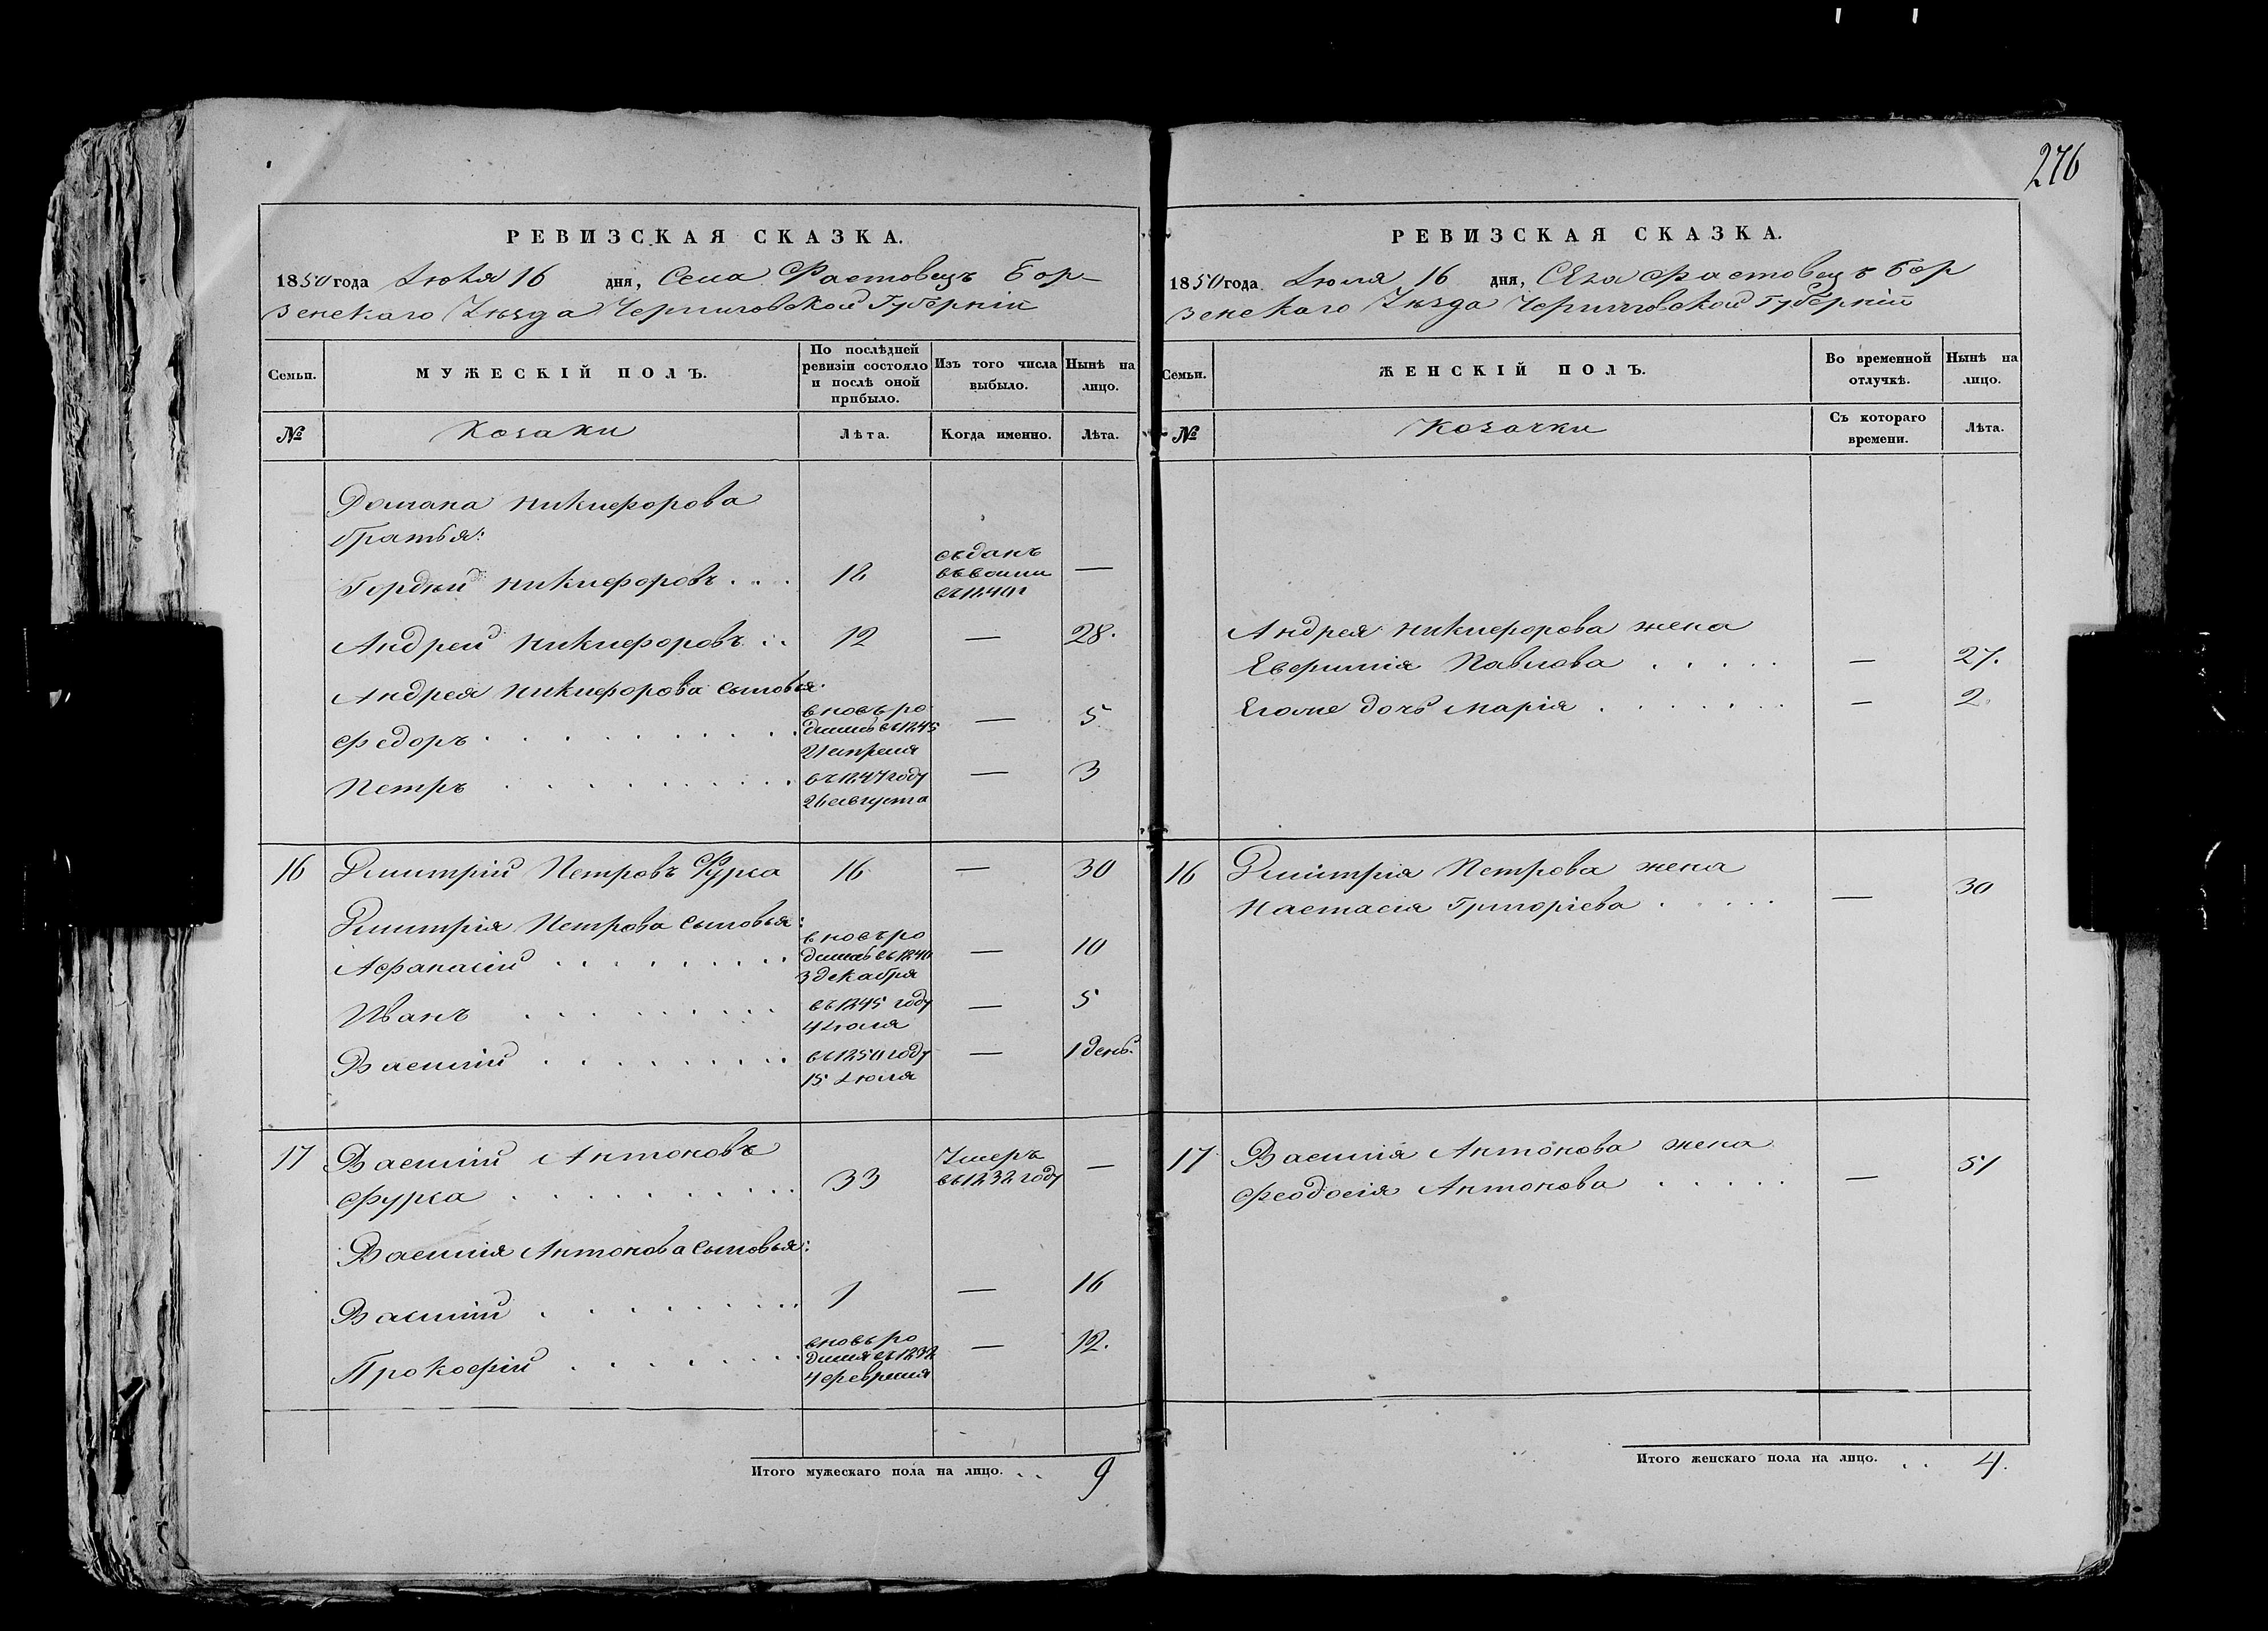 276
РЕВИЗСКАЯ СКАЗКА.
1850 года Іюля 16 дня, Села Фастовецъ Бор-
зенскаго Уѣзда Черниговской Губерніи
Семьи. МУЖЕСКІЙ ПОЛЪ. По послѣдней ревизіи состояло и послѣ оной прибыло. Изъ того числа выбыло. Нынѣ на лицо.
№ Козаки Лѣта. Когда именно. Лѣта.
Домана Никифорова
братья:
Гордѣй Никифоровъ . . . 18 сѫданъ
Андрей Никифоровъ . . 12 — 28.
Андрея Никифорова сыновья:
Федоръ вновь ро
дился въ 1845
21 апреля — 5
Петръ въ 1847 году
26 августа — 3
16 Дмитрій Петровъ Фурса 16 — 30
Дмитрія Петрова сыновья:
Афанасій вновь ро
дился въ 1840
3 декабря — 10
Иванъ въ 1845 году
4 Іюля — 5
Василій въ 1850 году
15 Іюля — 1 день.
17 Василій Антоновъ
Фурса 33 Умеръ
въ 1838 году —
Василія Антонова сыновья:
Василій 1 — 16
Прокофій вновь ро
дился въ 1838
4 февраля — 12.
Итого мужескаго пола на лицо. . . 9
РЕВИЗСКАЯ СКАЗКА.
1850 года Іюля 16 дня, Села Фастовецъ Бор
зенскаго Уѣзда Черниговской Губерніи
Семьи. ЖЕНСКІЙ ПОЛЪ. Во временной отлучкѣ. Нынѣ на лицо.
№ Козачки Съ котораго времени. Лѣта.
Андрея Никифорова жена
Евфимія Павлова . . . . . — 27.
Егоже дочь Марія . . . . . . — 2.
16 Дмитрія Петрова жена
Настасія Григоріева . . . . . — 30
17 Василія Антонова жена
Феодосія Антонова . . . . . — 51
Итого женскаго пола на лицо. . . 4.